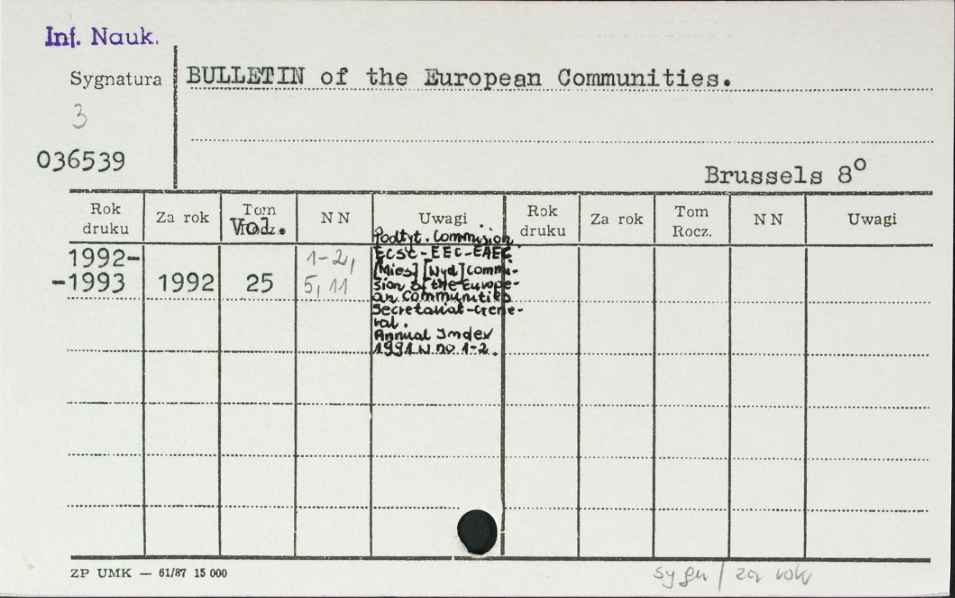 Inf. Nauk.
Sygnatura
BULLETIN of the European Communities.
3
036539
Brussels 8º
Rok druku Za rok Tom Vol. NN Uwagi Rok druku Za rok Tom Rocz. NN Uwagi
1992-
-1993 1992 25 1-2, 5, 11
Podtyt. Commision
ECSC-EEC-EAEC.
[Mies] [Wyd] Commi-
sion of the Europe-
an Communities
Secretariat-Gene-
ral.
Annual Index
1991 w no 1-2.
ZP UMK — 61/87 15 000
sygn / za rok